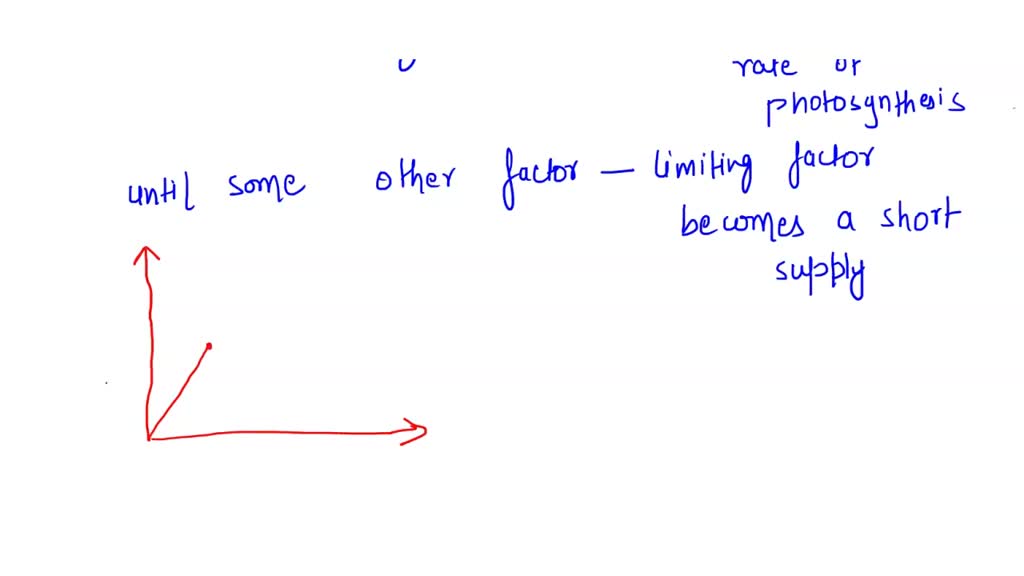 rate of
photosynthesis
until some other factor — limiting factor
becomes a short
supply